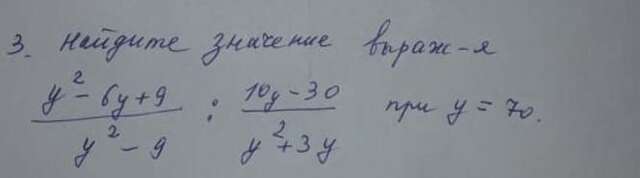 3. Найдите значение выраж-я
y² - 6y + 9 / y² - 9 : 10y - 30 / y² + 3y при y = 70.